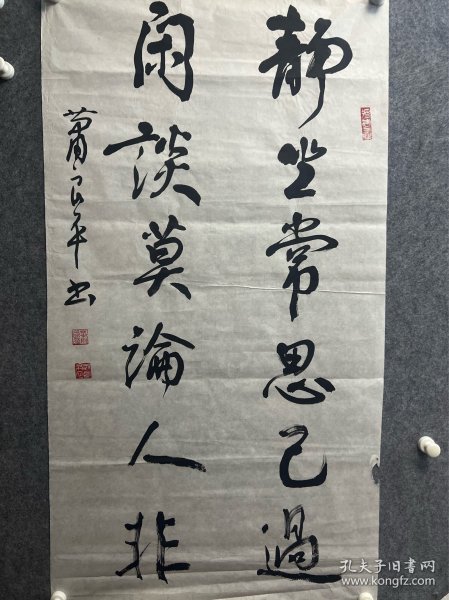 静坐常思己過
闲談莫論人非
萧良平书
孔夫子旧书网
www.kongfz.com